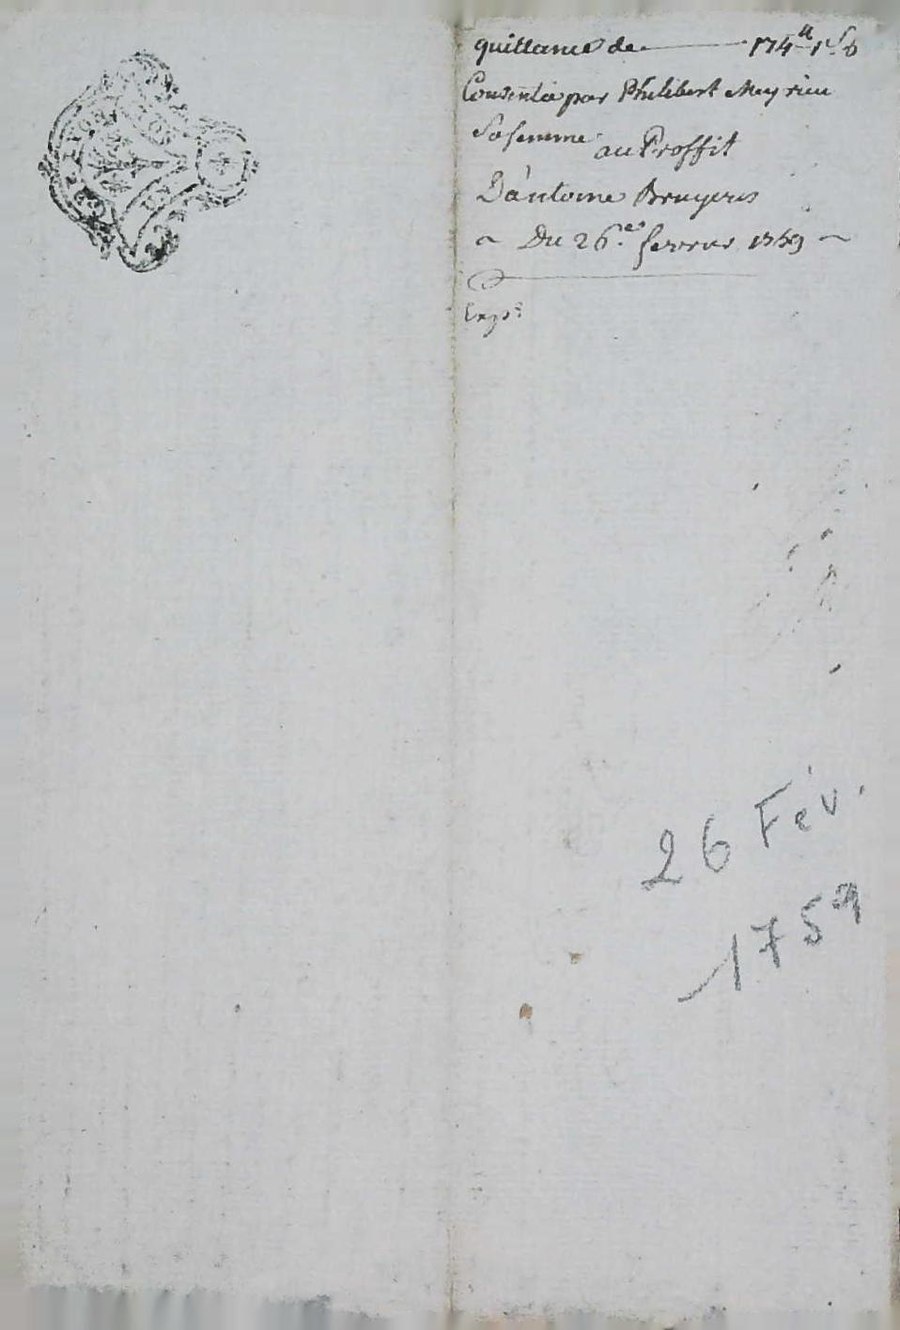 quittance de 174# 1s 6
Consentie par Philibert Meyrieu
Sa femme au Proffit
D'antoine Bruyeres
Du 26e fevrier 1759
Exp.
26 Fév.
1759